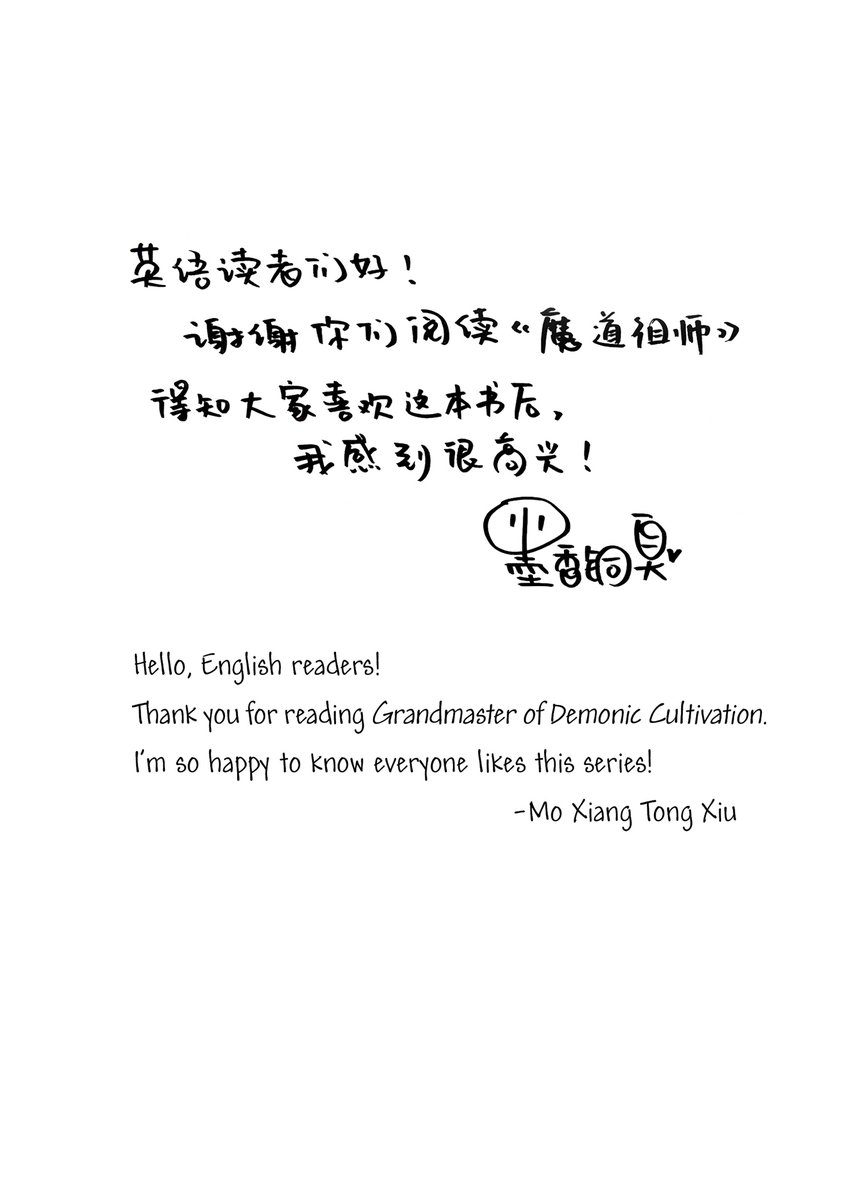 英语读者们好！
谢谢你们阅读《魔道祖师》
得知大家喜欢这本书后，
我感到很高兴！
墨香铜臭
Hello, English readers!
Thank you for reading Grandmaster of Demonic Cultivation.
I'm so happy to know everyone likes this series!
-Mo Xiang Tong Xiu